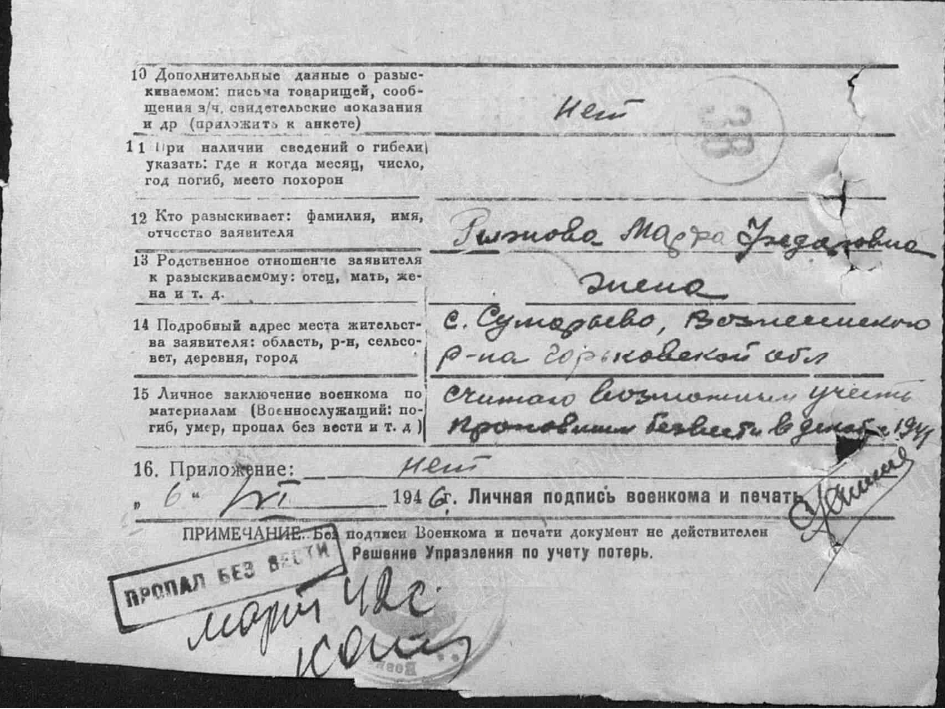 10 Дополнительные данные о разыс-
киваемом: письма товарищей, сооб-
щения з/ч. свидетельские показания
и др (приложить к анкете)
нет
38
11 При наличии сведений о гибели
указать: где и когда месяц, число,
год погиб, место похорон
12 Кто разыскивает: фамилия, имя,
отчество заявителя
Рыжова Марфа
13 Родственное отношение заявителя
к разыскиваемому: отец, мать, же-
на и т. д.
жена
14 Подробный адрес места жительст-
ва заявителя: область, р-н, сельсо-
вет, деревня, город
с. Сумарьево, Вознесенского
р-на Горьковской обл
15 Личное заключение военкома по
материалам (Военнослужащий: по-
гиб, умер, пропал без вести и т. д)
считаю возможным учесть
пропавшим безвести в 1941
16. Приложение: нет
„ 6 “ VI 1946г. Личная подпись военкома и печать
ПРИМЕЧАНИЕ. Без подписи Военкома и печати документ не действителен
Решение Управления по учету потерь.
ПРОПАЛ БЕЗ ВЕСТИ
март 42г.